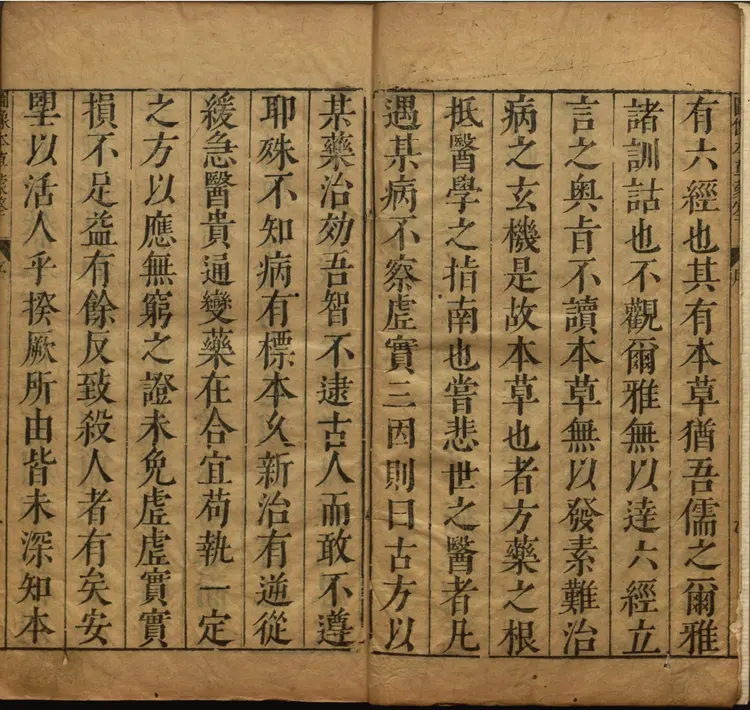 有六經也其有本草猶吾儒之爾雅
諸訓詁也不觀爾雅無以達六經立
言之奧旨不讀本草無以發素難治
病之玄機是故本草也者方藥之根
抵醫學之指南也嘗悲世之醫者凡
遇某病不察虛實三因則曰古方以
某藥治効吾智不逮古人而敢不遵
耶殊不知病有標本久新治有逆從
緩急醫貴通變藥在合宜苟執一定
之方以應無窮之證未免虛虛實實
損不足益有餘反致殺人者有矣安
朢以活人乎揆厥所由皆未深知本